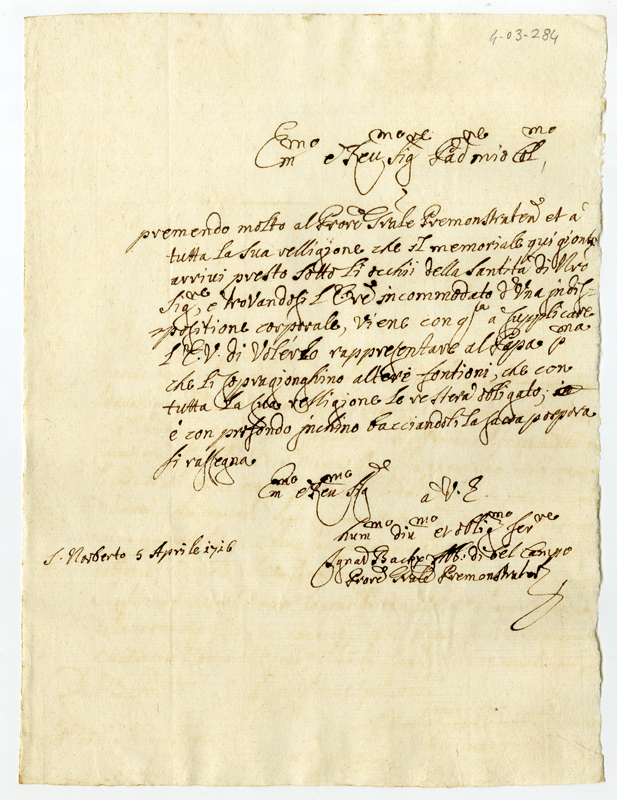 4-03-284
Em.mo e Reu.mo Sig.re Pad.ne mio Col.mo
premendo molto al Pror.e Gñale Premonstraten. et a
tutta la sua relligione che il memoriale qui gionto
arrivi presto sotto li occhii della Santità di Nro
Sig.re, e trovandosi l'Ore incommodato d'una indis-
positione corporale, viene con q.sta a supplicare
l'E.V. di volerlo rappresentare al Papa p.ma
che li sopragionghino altere fontioni, che con
tutta la sua relligione le resterà obligato;
è con profondo inchino bacciandoli la sacra porpora
si rassegna
Em.mo e Reu.mo Sig.re
a V. E.
hum.mo diu.mo et oblig.mo ser.re
S. Norberto 5 Aprile 1716
Abb. di bel Campo
Pror.e Gñale Premonstraten.